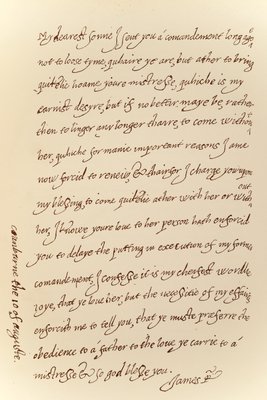 My dearest sonne I sent you a comandement long ago
not to loose tyme, quhaire ye are, but ather to bring
quikelie hoame youre mistresse, quhiche is my
earnist desyre, but if no better maye be, rather
then to linger any longer thaire, to come without
her, quhiche for manie important reasons I ame
now forcid to renew, & thairfor I charge you upon
my blessing, to come quikelie ather with her or without
her, I knowe youre love to her person hath enforcid
you to delaye the putting in execution of my former
comandement, I confesse it is my cheifest worldlie
joye, that ye love her, but the necessitie of my affaires
enforcith me to tell you, that ye muste præferre the
obedience to a father to the love ye carrie to a
mistresse & so god blesse you.
James R
the 10 of auguste.